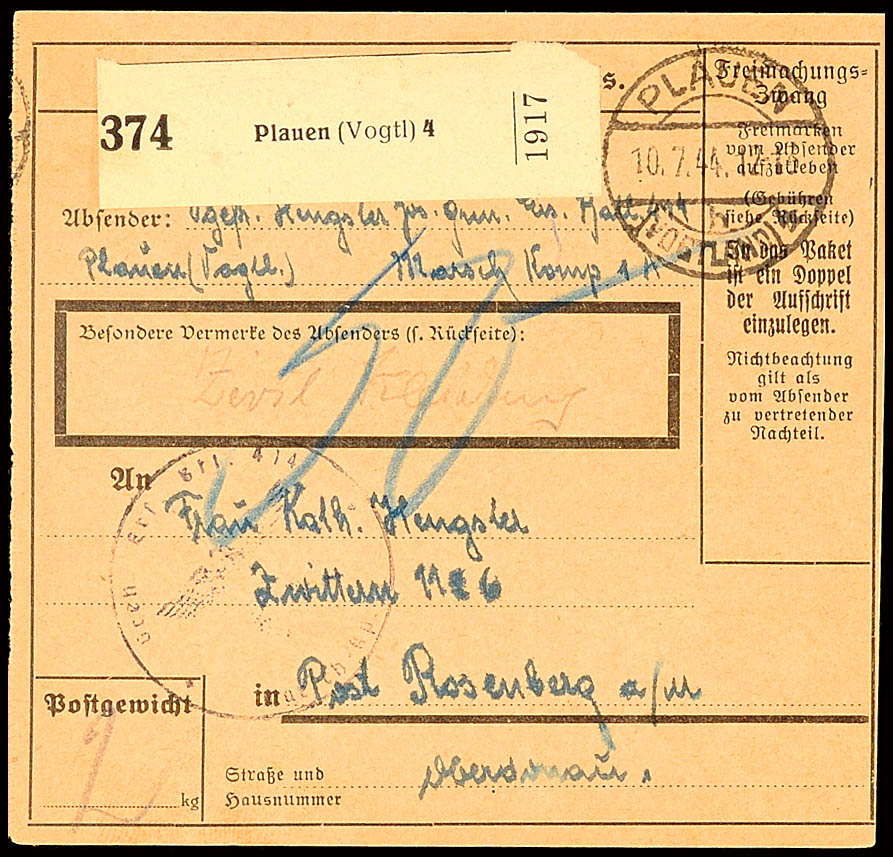 374
Plauen (Vogtl) 4
1917
s.
PLAUEN
10.7.44.
b
(VOGTL)
Freimachungs-
Zwang
Freimarken
vom Absender
aufzukleben
(Gebühren
siehe Rückseite)
In das Paket
ist ein Doppel
der Aufschrift
einzulegen.
Nichtbeachtung
gilt als
vom Absender
zu vertretender
Nachteil.
Absender: Hengsler Jos.
Plauen (Vogtl.) Marsch Komp
Besondere Vermerke des Absenders (s. Rückseite):
Zivil Kleidung
An
Frau Kath. Hengsler
Zwittern
in Post Rosenberg a/M
Oberdonau.
Straße und
Hausnummer
Postgewicht
2
kg